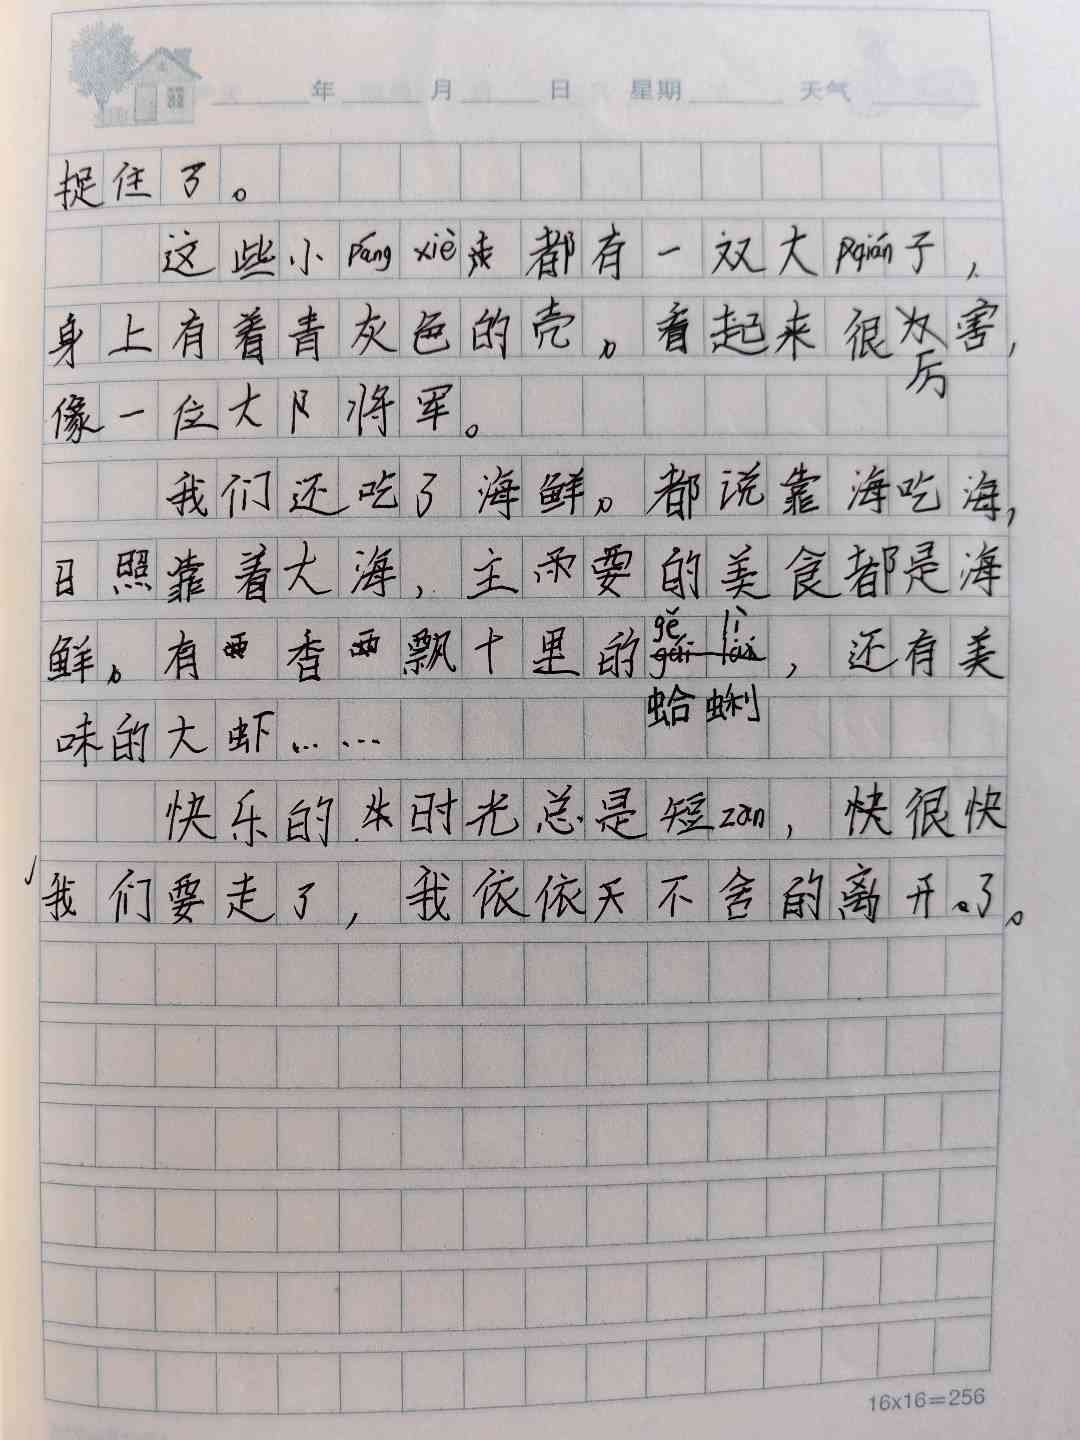 年 月 日 星期 天气
捉住了。
这些小páng xiè都有一双大qián子，
身上有着青灰色的壳。看起来很厉害，
像一位大将军。
我们还吃了海鲜。都说靠海吃海，
日照靠着大海，主要的美食都是海
鲜。有香飘十里的gě lì，还有美
蛤蜊
味的大虾……
快乐的时光总是短zàn，快很快
我们要走了，我依依不舍的离开了。
16x16=256